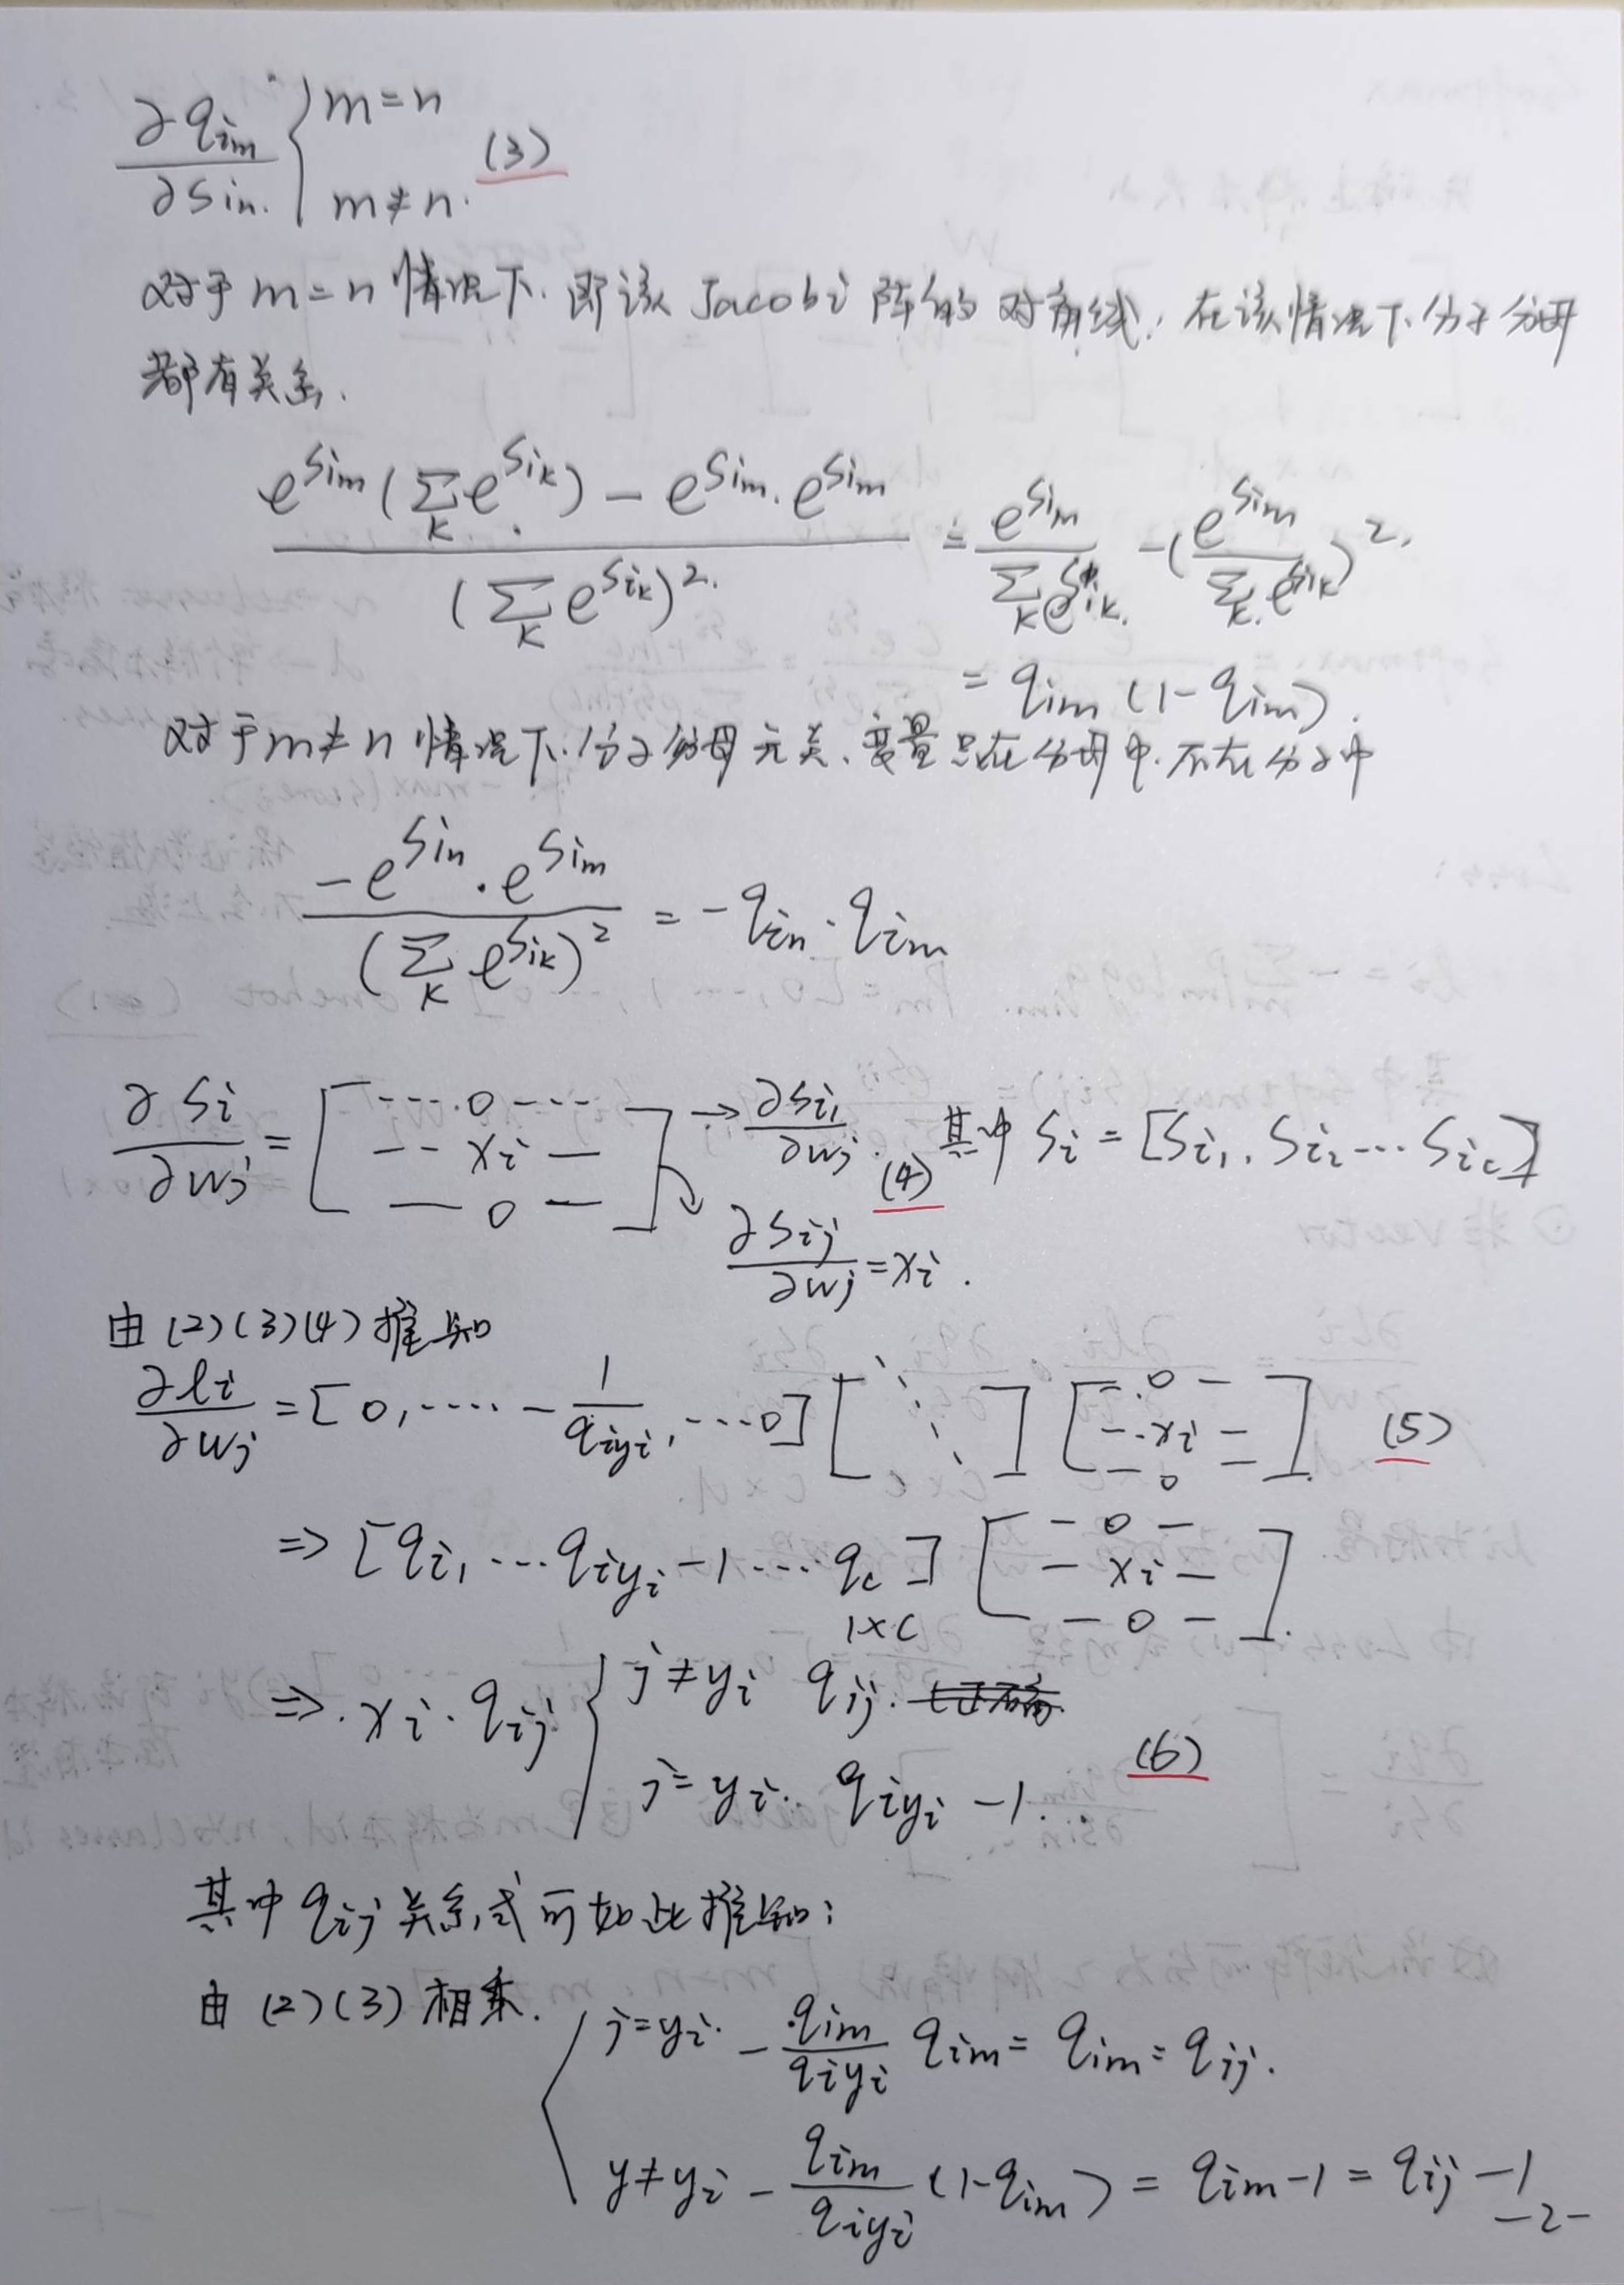 ∂q_{im}/∂s_{in} { m=n
m≠n. (3)
对于 m=n 情况下. 即该 Jacobi 阵的对角线. 在该情况下分子分母
都有关系.
(e^{s_{im}}(∑_k e^{s_{ik}}) - e^{s_{im}}·e^{s_{im}})/(∑_k e^{s_{ik}})^2 = e^{s_{im}}/∑_k e^{s_{ik}} - (e^{s_{im}}/∑_k e^{s_{ik}})^2
= q_{im}(1-q_{im}).
对于 m≠n 情况下. 分子分母无关. 变量只在分母中. 不在分子中
(-e^{s_{in}}·e^{s_{im}})/(∑_k e^{s_{ik}})^2 = -q_{in}·q_{im}
∂s_i/∂w_j = [----0---
-- x_i —
— 0 —] → ∂s_{i1}/∂w_j. (4) 其中 s_i = [s_{i1}, s_{i2} ... s_{ic}]
∂s_{ij}/∂w_j = x_i.
由 (2)(3)(4) 推知
∂l_i/∂w_j = [0, ···· -1/q_{iy_i}, ···0] [⋱] [--0-
--x_i —
— 0] (5)
⇒ [q_{i1} ··· q_{iy_i}-1 ···· q_c]_{1×C} [— 0 —
— x_i —
— 0 —].
⇒ x_i · q_{ij} { j≠y_i q_{ij}.
j=y_i. q_{iy_i} -1. (6)
其中 q_{ij} 关系式可如此推知:
由 (2)(3) 相乘.
{ j=y_i. -q_{im}/q_{iy_i} q_{im} = q_{im} = q_{ij}.
y≠y_i -q_{im}/q_{iy_i} (1-q_{im}) = q_{im}-1 = q_{ij}-1
-2-